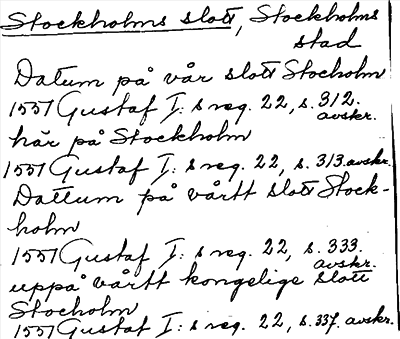 Stockholms slott, Stockholms
stad
Datum på vår slott Stocholm
1551 Gustaf I: s reg. 22, s. 312.
avskr.
här på Stockholm
1551 Gustaf I: s reg. 22, s. 313. avskr.
Dattum på vårtt slott Stock-
holm
1551 Gustaf I: s reg. 22, s. 333.
avskr.
uppå vårtt kongelige slott
Stocholm
1551 Gustaf I: s reg. 22, s. 337. avskr.